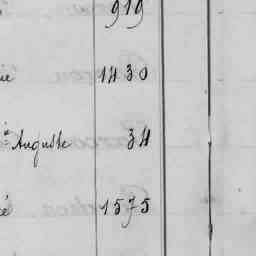 919
ie 1430
Auguste 34
cé 1575